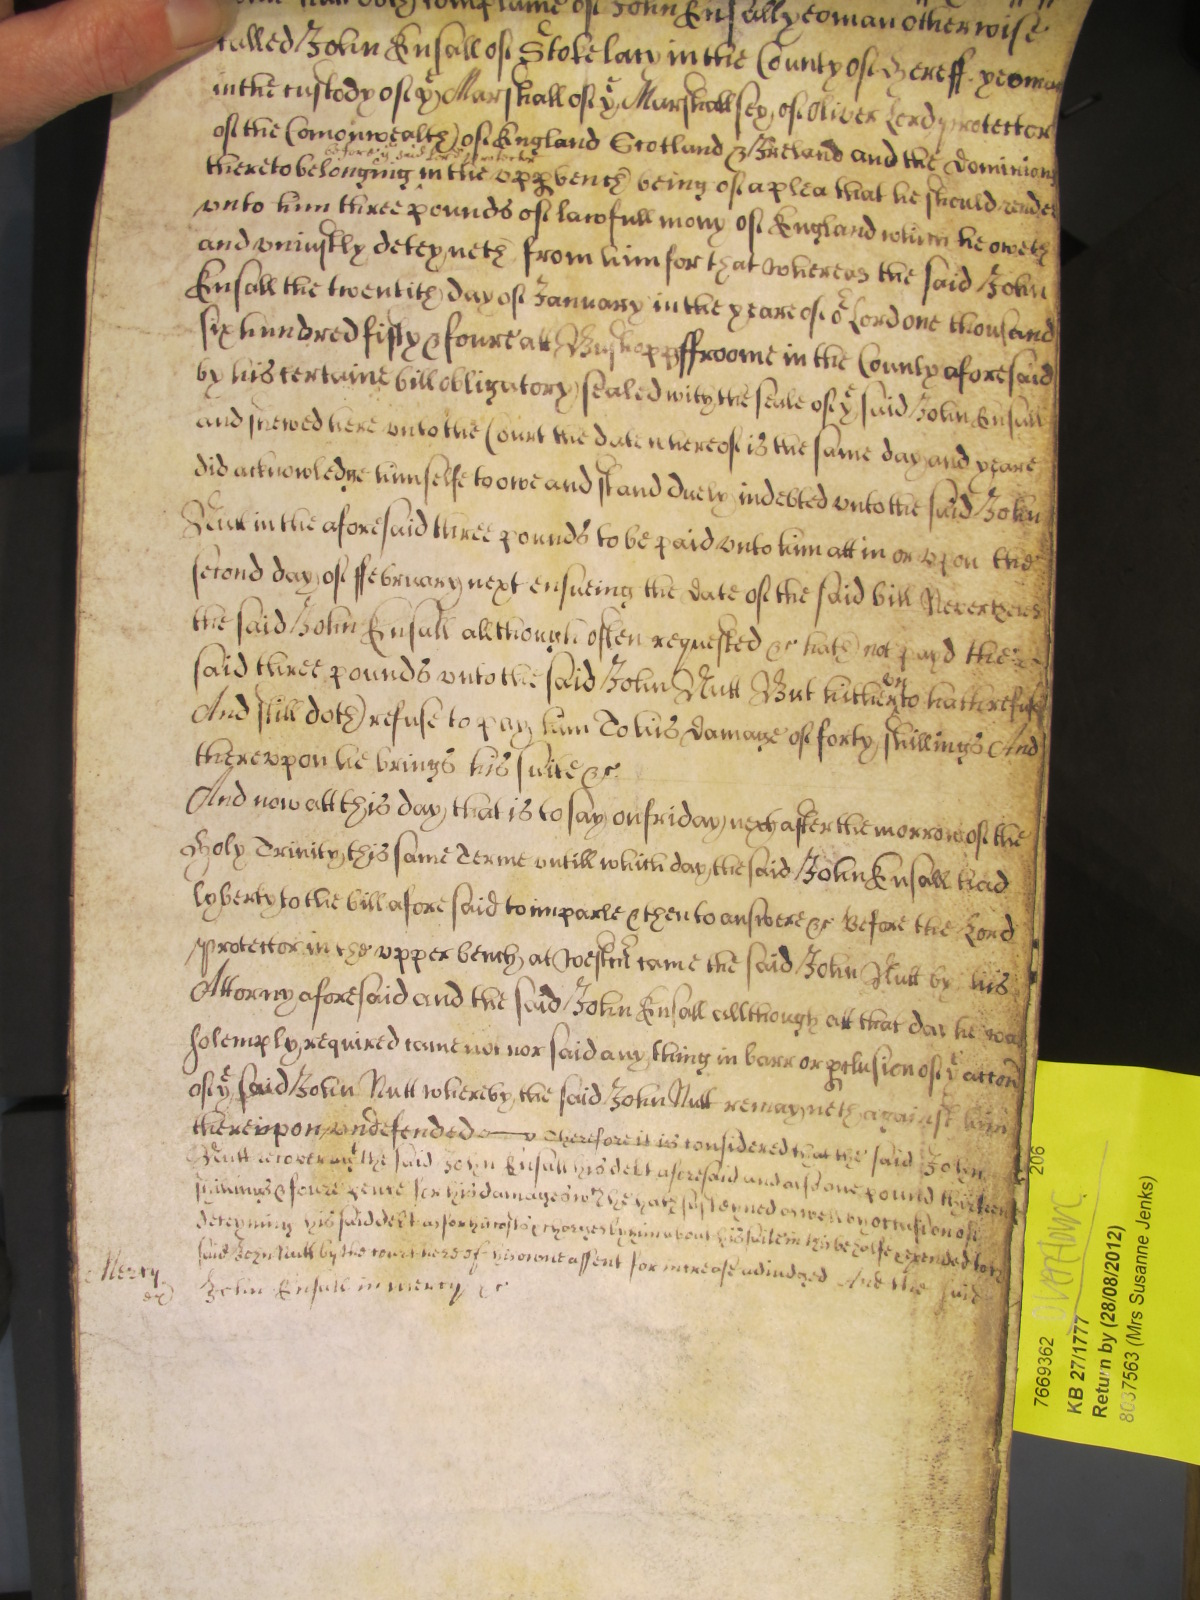 John Nutt doth complaine of John Ensall yeoman otherwise
called John Ensall of Stoke lacy in the County of Hereff yeoman
in the custody of ye Marshall of ye Marshallsey of Oliver Lord protector
of the Comonwealth of England Scotland & Ireland and the Dominions
before ye said Lord protector
thereto belonging in the upp bench being of a plea that he should render
unto him three pounds of lawfull mony of England which he oweth
and uniustly deteyneth from him for that whereas the said John
Ensall the twentith day of January in the yeare of or Lord one thousand
six hundred fifty & foure att Bushopps ffroome in the County aforesaid
by his certaine bill obligatory sealed with the seale of ye said John Ensall
and shewed here unto the Court the date whereof is the same day and yeare
did acknowledge himselfe to owe and stand duely indebted unto the said John
Nutt in the aforesaid three pounds to be paid unto him att in or upon the
second day of ffebruary next ensueing the date of the said bill Neverthelesse
the said John Ensall allthough often requested &c hath not payd the
said three pounds unto the said John Nutt But hitherto hath refused
And still doth refuse to pay him To his damage of forty shillings And
thereupon he brings his suite &c
And now att this day that is to say on friday next after the morrow of the
Holy Trinity this same Terme untill which day the said John Ensall had
lyberty to the bill aforesaid to imparle & then to answere &c Before the Lord
Protector in the upper bench at Westmr came the said John Nutt by his
Attorny aforesaid and the said John Ensall allthough att that day he was
solemply required came not nor said any thing in barr or pclusion of ye accon
of ye said John Nutt whereby the said John Nutt remayneth against him
thereupon undefended Therefore it is considered that the said John
Nutt recover agt the said John Ensall his debt aforesaid and also one pound thirteene
shillings & foure pence for his damages wch he hath susteyned aswell by occasion of
deteyning his said debt as for his costs & charges by him about his suite in this behalfe expended to ye
said John Nutt by the court here of his owne assent for increase adiudged And the said
John Ensall in mercy &c
Mercy
7669362
KB 27/1777
Return by (28/08/2012)
8037563 (Mrs Susanne Jenks)
206
Overflow